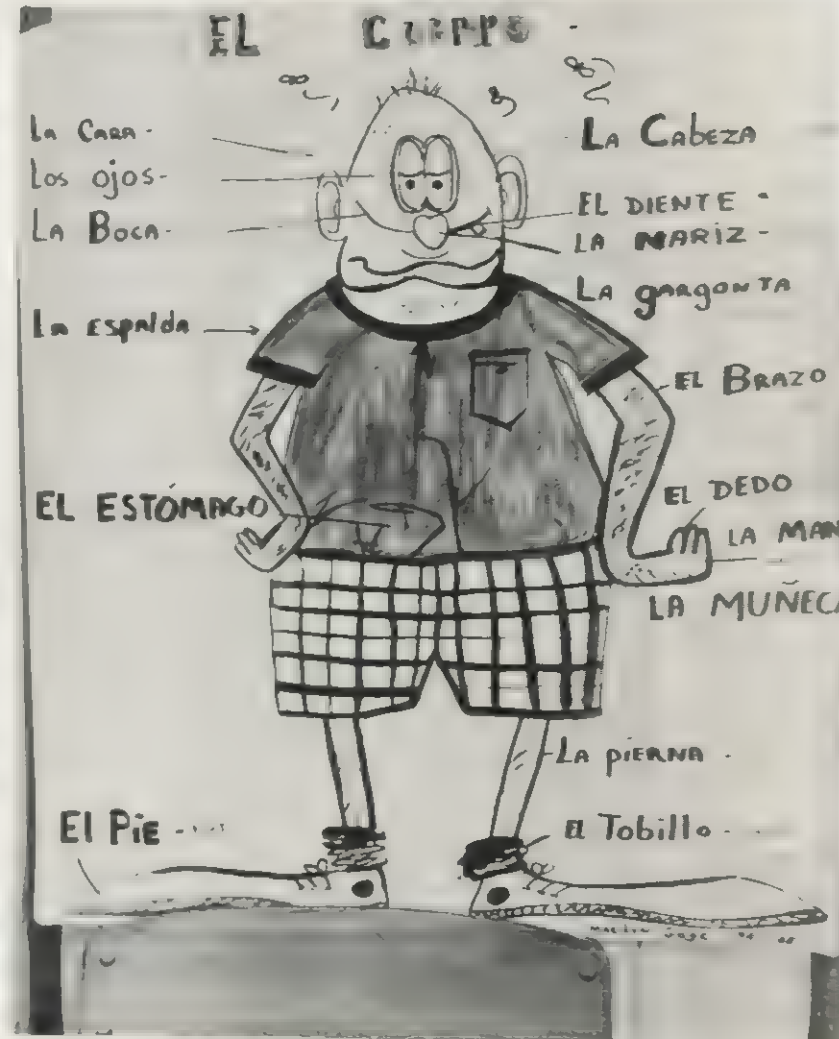 EL CUERPO
La CARA
Los ojos
La BOCA
La Espalda
EL ESTÓMAGO
El Pie
LA CabEZA
EL DIENTE
LA NARIZ
La gargonta
EL BRAZO
EL DEDO
LA MAN
LA MUÑECA
La piERNA
El Tobillo